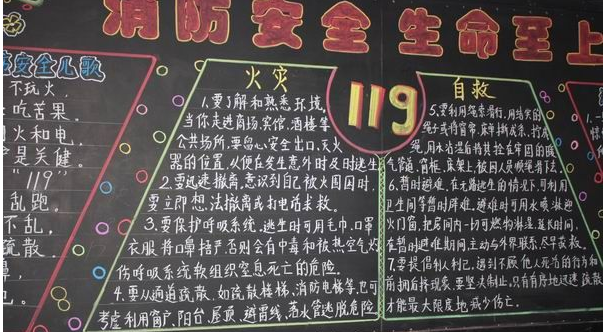 消防安全 生命至上
安全儿歌
不玩火,
吃苦果。
火和电,
是关健。
"119"
乱跑,
不乱,
疏散。
火灾
1.要了解和熟悉环境,
当你走进商场、宾馆、酒楼等
公共场所,要留心安全出口、灭火
器的位置,以便在发生意外时及时逃生
2.要迅速撤离,意识到自己被火围困时,
要立即想法撤离或打电话求救。
3.要保护呼吸系统,逃生时可用毛巾、口罩
衣服将口鼻捂严否则会有中毒和被热空气灼
伤呼吸系统软组织窒息死亡的危险。
4.要从通道疏散,如疏散楼梯、消防电梯等,也可
考虑利用窗户、阳台、屋顶、避雷线、落水管逃脱危险
119
自救
5.要利用绳索滑行,用结实的
绳子或将窗帘、床单撕成条,拧成
绳,用水沾湿后将其拴在牢固的暖
气管道、窗框、床架上,被困人员顺绳滑下去
6.暂时避难,在无路逃生的情况下,可利用
卫生间等暂时避难。避难时可用水喷淋迎
火门窗,把房间内一切可燃物淋湿,延长时间,
在暂时避难期间,主动与外界联系,尽早获救。
7.要提倡利人利己,遇到不顾他人死活的行为和
前拥后挤现象,要坚决制止,只有有序地迅速疏散
才能最大限度地减少伤亡。